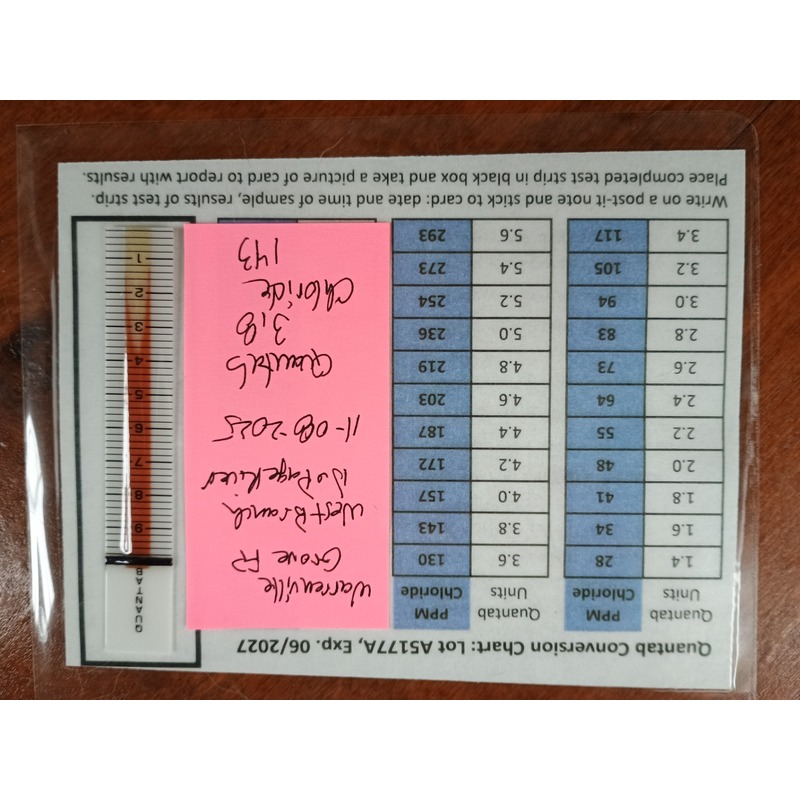 Quantab Conversion Chart: Lot A5177A, Exp. 06/2027
Quantab Units PPM Chloride Quantab Units PPM Chloride
1.4 28 3.6 130
1.6 34 3.8 143
1.8 41 4.0 157
2.0 48 4.2 172
2.2 55 4.4 187
2.4 64 4.6 203
2.6 73 4.8 219
2.8 83 5.0 236
3.0 94 5.2 254
3.2 105 5.4 273
3.4 117 5.6 293
Warrenville
Grove FP
West Branch
DuPage River
11-08-2025
Quantab
3.8
Chloride
143
QUANTAB
9
8
7
6
5
4
3
2
1
Write on a post-it note and stick to card: date and time of sample, results of test strip.
Place completed test strip in black box and take a picture of card to report with results.